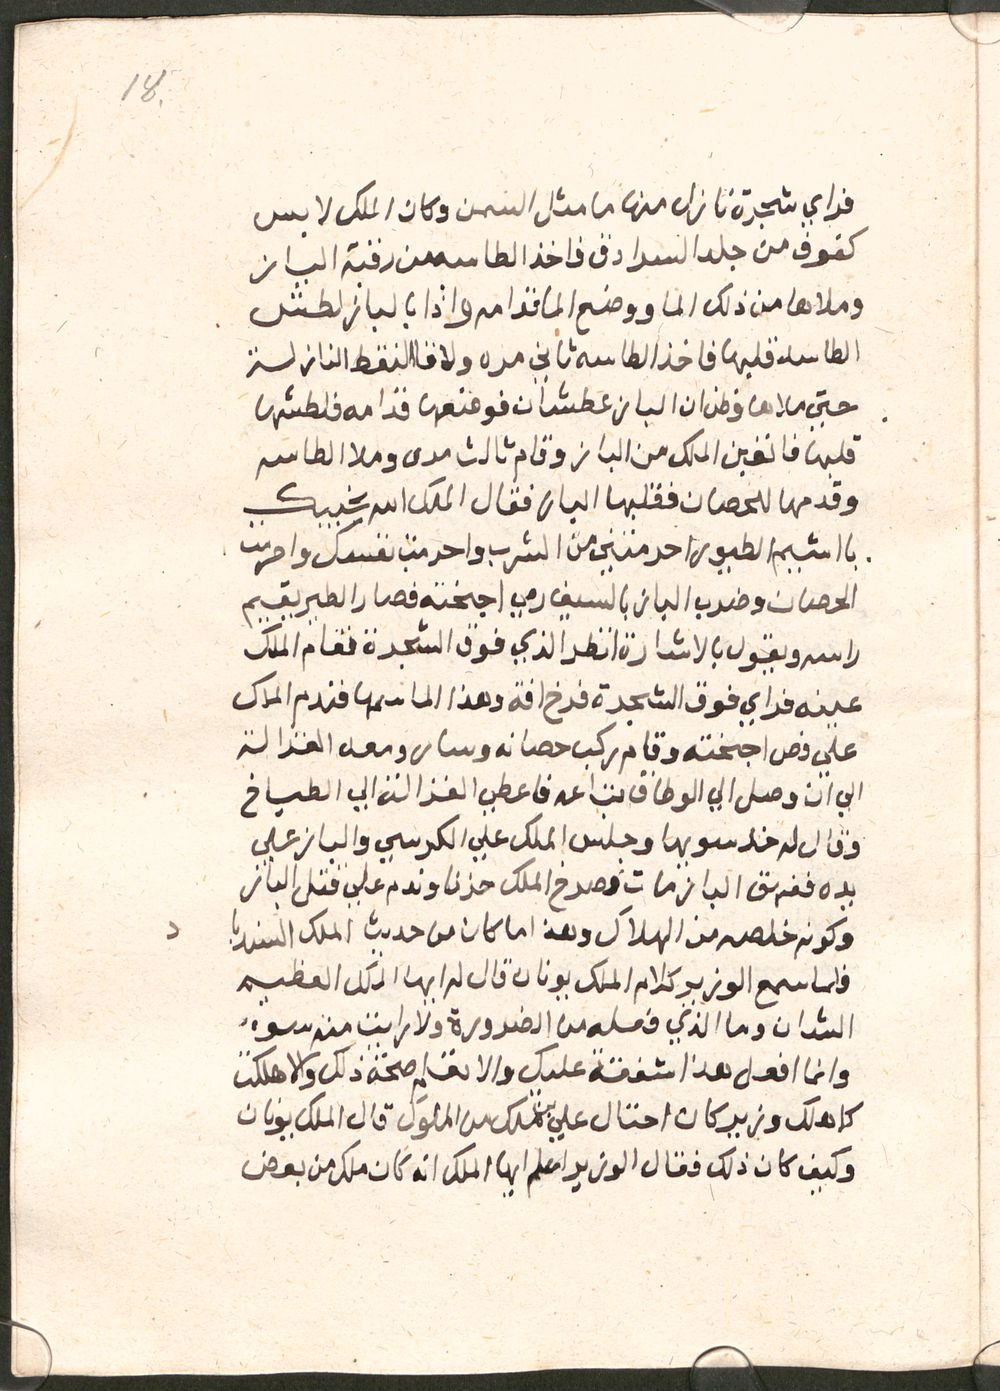 18.
فراي شجرة نازل منها ما مثل السمن وكان الملك لابس
كفوف من جلد السوادق فاخذ الطاسه من رقبة الباز
وملاها من ذلك الما ووضع الما قدامه واذا بالباز لطش
الطاسه قلبها فاخذ الطاسه ثاني مره ولاقا النقط النازلة
حتي ملاها وظن ان الباز عطشان فوضعها قدامه فلطشها
قلبها فانغبن الملك من الباز وقام ثالث مرى وملا الطاسه
وقدمها للحصان فقلبها الباز فقال الملك الله يخيبك
يا اشيم الطيور احرمتني من الشرب واحرمت نفسك واحرمت
الحصان وضرب الباز بالسيف رمي اجنحته فصار الطير يقيم
راسه ويقول بالاشارة انظر الذي فوق الشجرة فقام الملك
عينه فراي فوق الشجرة فرخ افة وهذا الما سمها فندم الملك
علي قص اجنحته وقام ركب حصانه وسار ومعه الغزالة
الي ان وصل الي الوطاق بتاعه فاعطي الغزالة الي الطباخ
وقال له خد سويها وجلس الملك علي الكرسي والباز علي
يده فشهق الباز مات فصرخ الملك حزنا وندم علي قتل الباز
وكونه خلصه من الهلاك وهذا ما كان من حديث الملك السندباد
فلما سمع الوزير كلام الملك يونان قال له ايها الملك العظيم
الشان وما الذي فعله من الضرورة ولا رايت منه سوء
وانما افعل هذا شفقة عليك والا تعلم صحة ذلك والا هلكت
كما هلك وزير كان احتال علي بن ملك من الملوك قال الملك يونان
وكيف كان ذلك فقال الوزير اعلم ايها الملك انه كان ملك من بعض